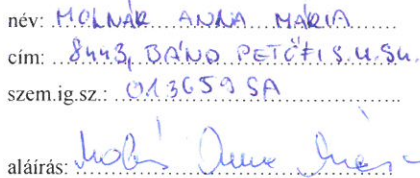 név: MOLNÁR ANNA MÁRIA
cím: 8443, BÁND PETŐFI S. U. 54.
szem.ig.sz.: 013659 SA
aláírás: Molnár Anna Mária